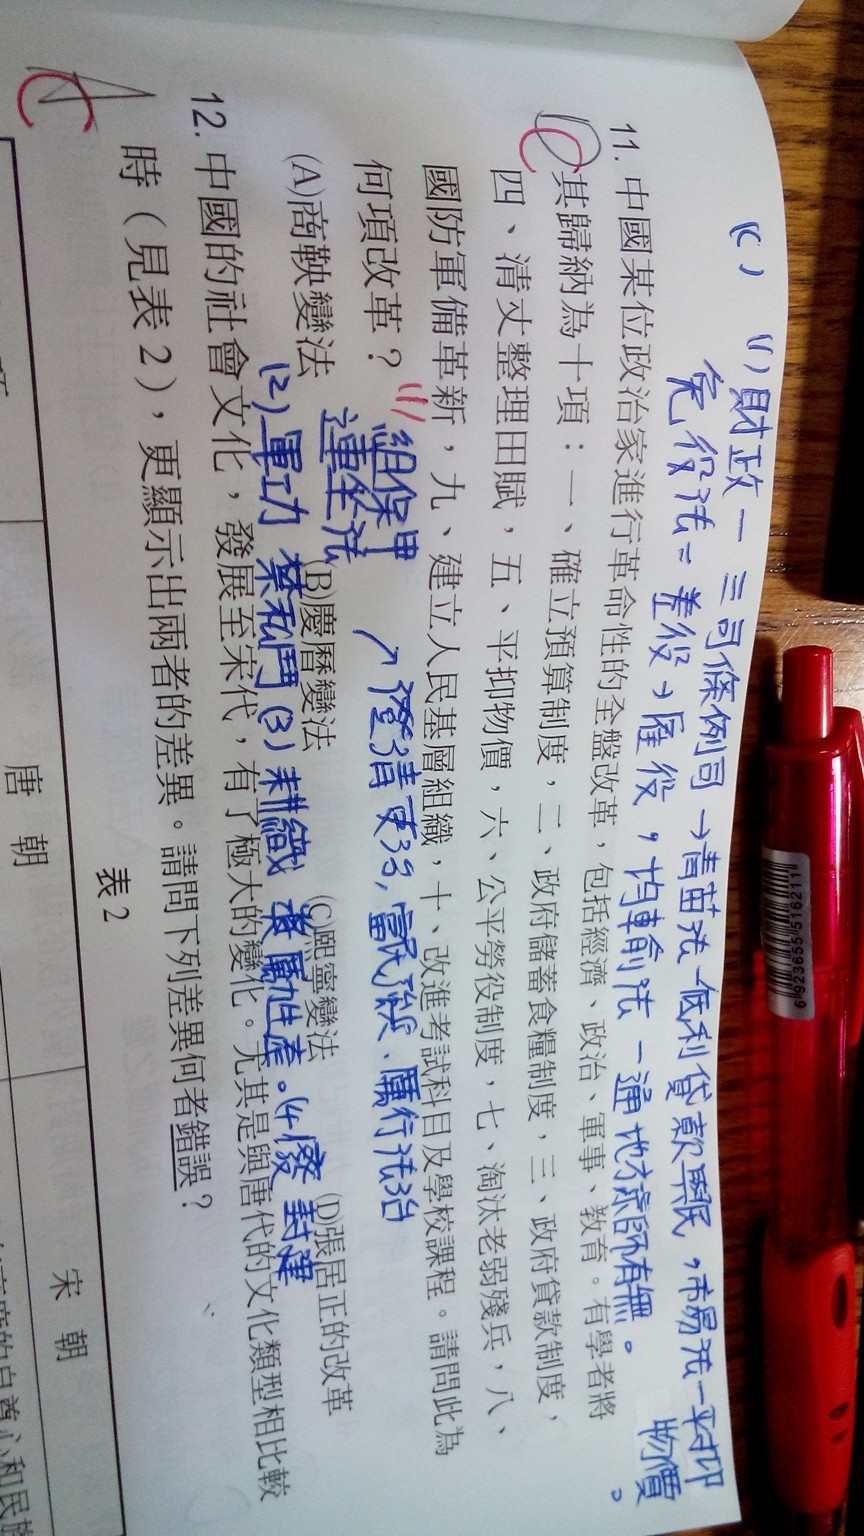 (C) (1)財政一三司條例司→青苗法-低利貸款農民,市易法-平抑物價。
免役法=差役→雇役,均輸法-通地方有無。
11. 中國某位政治家進行革命性的全盤改革,包括經濟、政治、軍事、教育。有學者將
其歸納為十項:一、確立預算制度,二、政府儲蓄食糧制度,三、政府貸款制度,
四、清丈整理田賦,五、平抑物價,六、公平勞役制度,七、淘汰老弱殘兵,八、
國防軍備革新,九、建立人民基層組織,十、改進考試科目及學校課程。請問此為
何項改革?
(1)組保甲
連坐法
↗澄清吏治,富民強、厲行法治
(A)商鞅變法 (B)慶曆變法 (C)熙寧變法 (D)張居正的改革
(2)軍功 禁私鬥 (3)耕織 獎勵生產。(4)廢封建
12. 中國的社會文化,發展至宋代,有了極大的變化。尤其是與唐代的文化類型相比較
時(見表2),更顯示出兩者的差異。請問下列差異何者錯誤?
表2
項 唐朝 宋朝
6923655516211